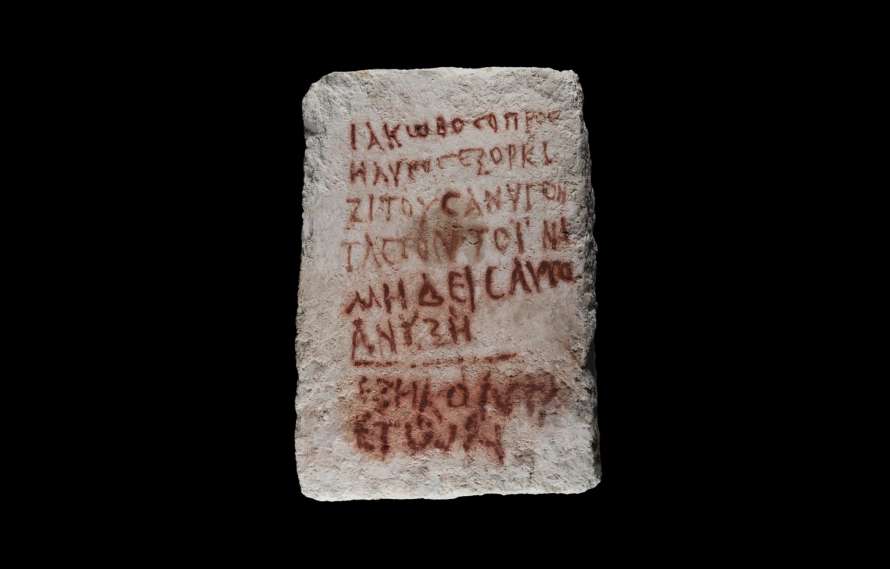 ΙΑΚΩΒΟϹΟΠΡΟϹ
ΗΛΥΤΟϹΕΞΟΡΚΙ
ΖΙΤΟΥϹΑΝΥΓΟΝ
ΤΑϹΤΟΝΤΟΪΝΑ
ΜΗΔΕΙϹΑΥΤΟ
ΑΝΥΞΗ
ΕΞΗΚΟΝΤΑ
ΕΤΩΝ